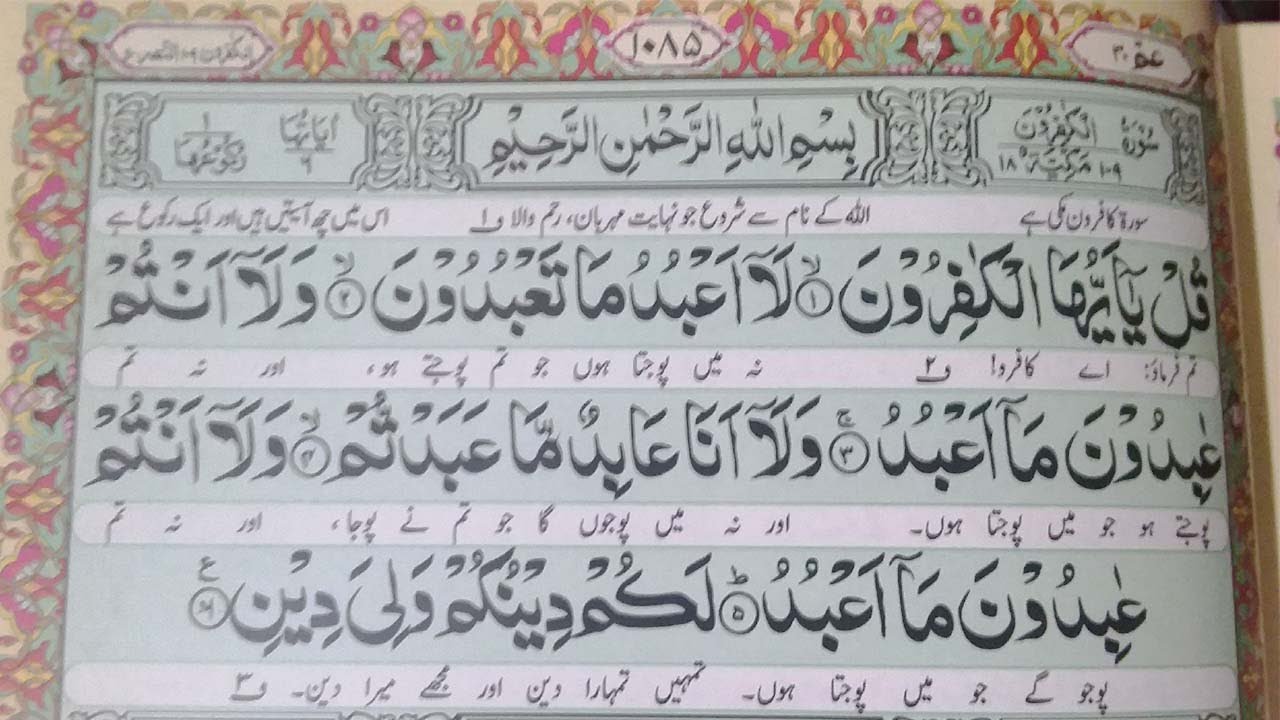 عم ۳۰ ۱۰۸۵ الکفرون ۱۰۹ النصر
سُوْرَةُ الْكٰفِرُوْنَ ۱۰۹ مَكِّيَّةٌ ۱۸ بِسْمِ اللّٰهِ الرَّحْمٰنِ الرَّحِيْمِ اٰيَاتُهَا ۶ رُكُوْعُهَا ۱
سورۃ کافرون مکی ہے اللہ کے نام سے شروع جو نہایت مہربان، رحم والا ف۱ اس میں چھ آیتیں ہیں اور ایک رکوع ہے
قُلْ يٰۤاَيُّهَا الْكٰفِرُوْنَ ۙ‏﴿۱﴾ لَاۤ اَعْبُدُ مَا تَعْبُدُوْنَ ۙ‏﴿۲﴾ وَلَاۤ اَنْتُمْ
تم فرماؤ: اے کافرو! ف۲ نہ میں پوجتا ہوں جو تم پوجتے ہو، اور نہ تم
عٰبِدُوْنَ مَاۤ اَعْبُدُ ۚ‏﴿۳﴾ وَلَاۤ اَنَا عَابِدٌ مَّا عَبَدْتُّمْ ۙ‏﴿۴﴾ وَلَاۤ اَنْتُمْ
پوجتے ہو جو میں پوجتا ہوں۔ اور نہ میں پوجوں گا جو تم نے پوجا، اور نہ تم
عٰبِدُوْنَ مَاۤ اَعْبُدُ ؕ‏﴿۵﴾ لَكُمْ دِيْنُكُمْ وَلِىَ دِيْنِ ‏﴿۶﴾ ع
پوجو گے جو میں پوجتا ہوں۔ تمہیں تمہارا دین اور مجھے میرا دین۔ ف۳